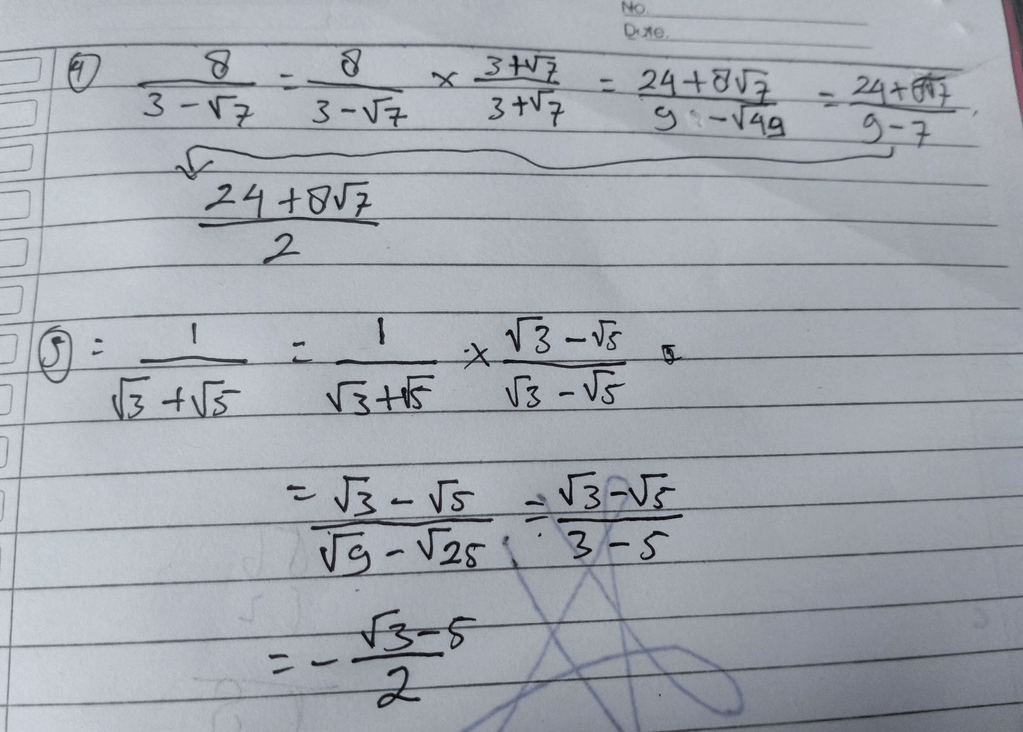 No.
Date.
④ 8/(3 - √7) = 8/(3 - √7) × (3 + √7)/(3 + √7) = (24 + 8√7)/(9 - √49) = (24 + 8√7)/(9 - 7)
(24 + 8√7)/2
⑤ = 1/(√3 + √5) = 1/(√3 + √5) × (√3 - √5)/(√3 - √5)
= (√3 - √5)/(√9 - √25) = (√3 - √5)/(3 - 5)
= - (√3 - 5)/2